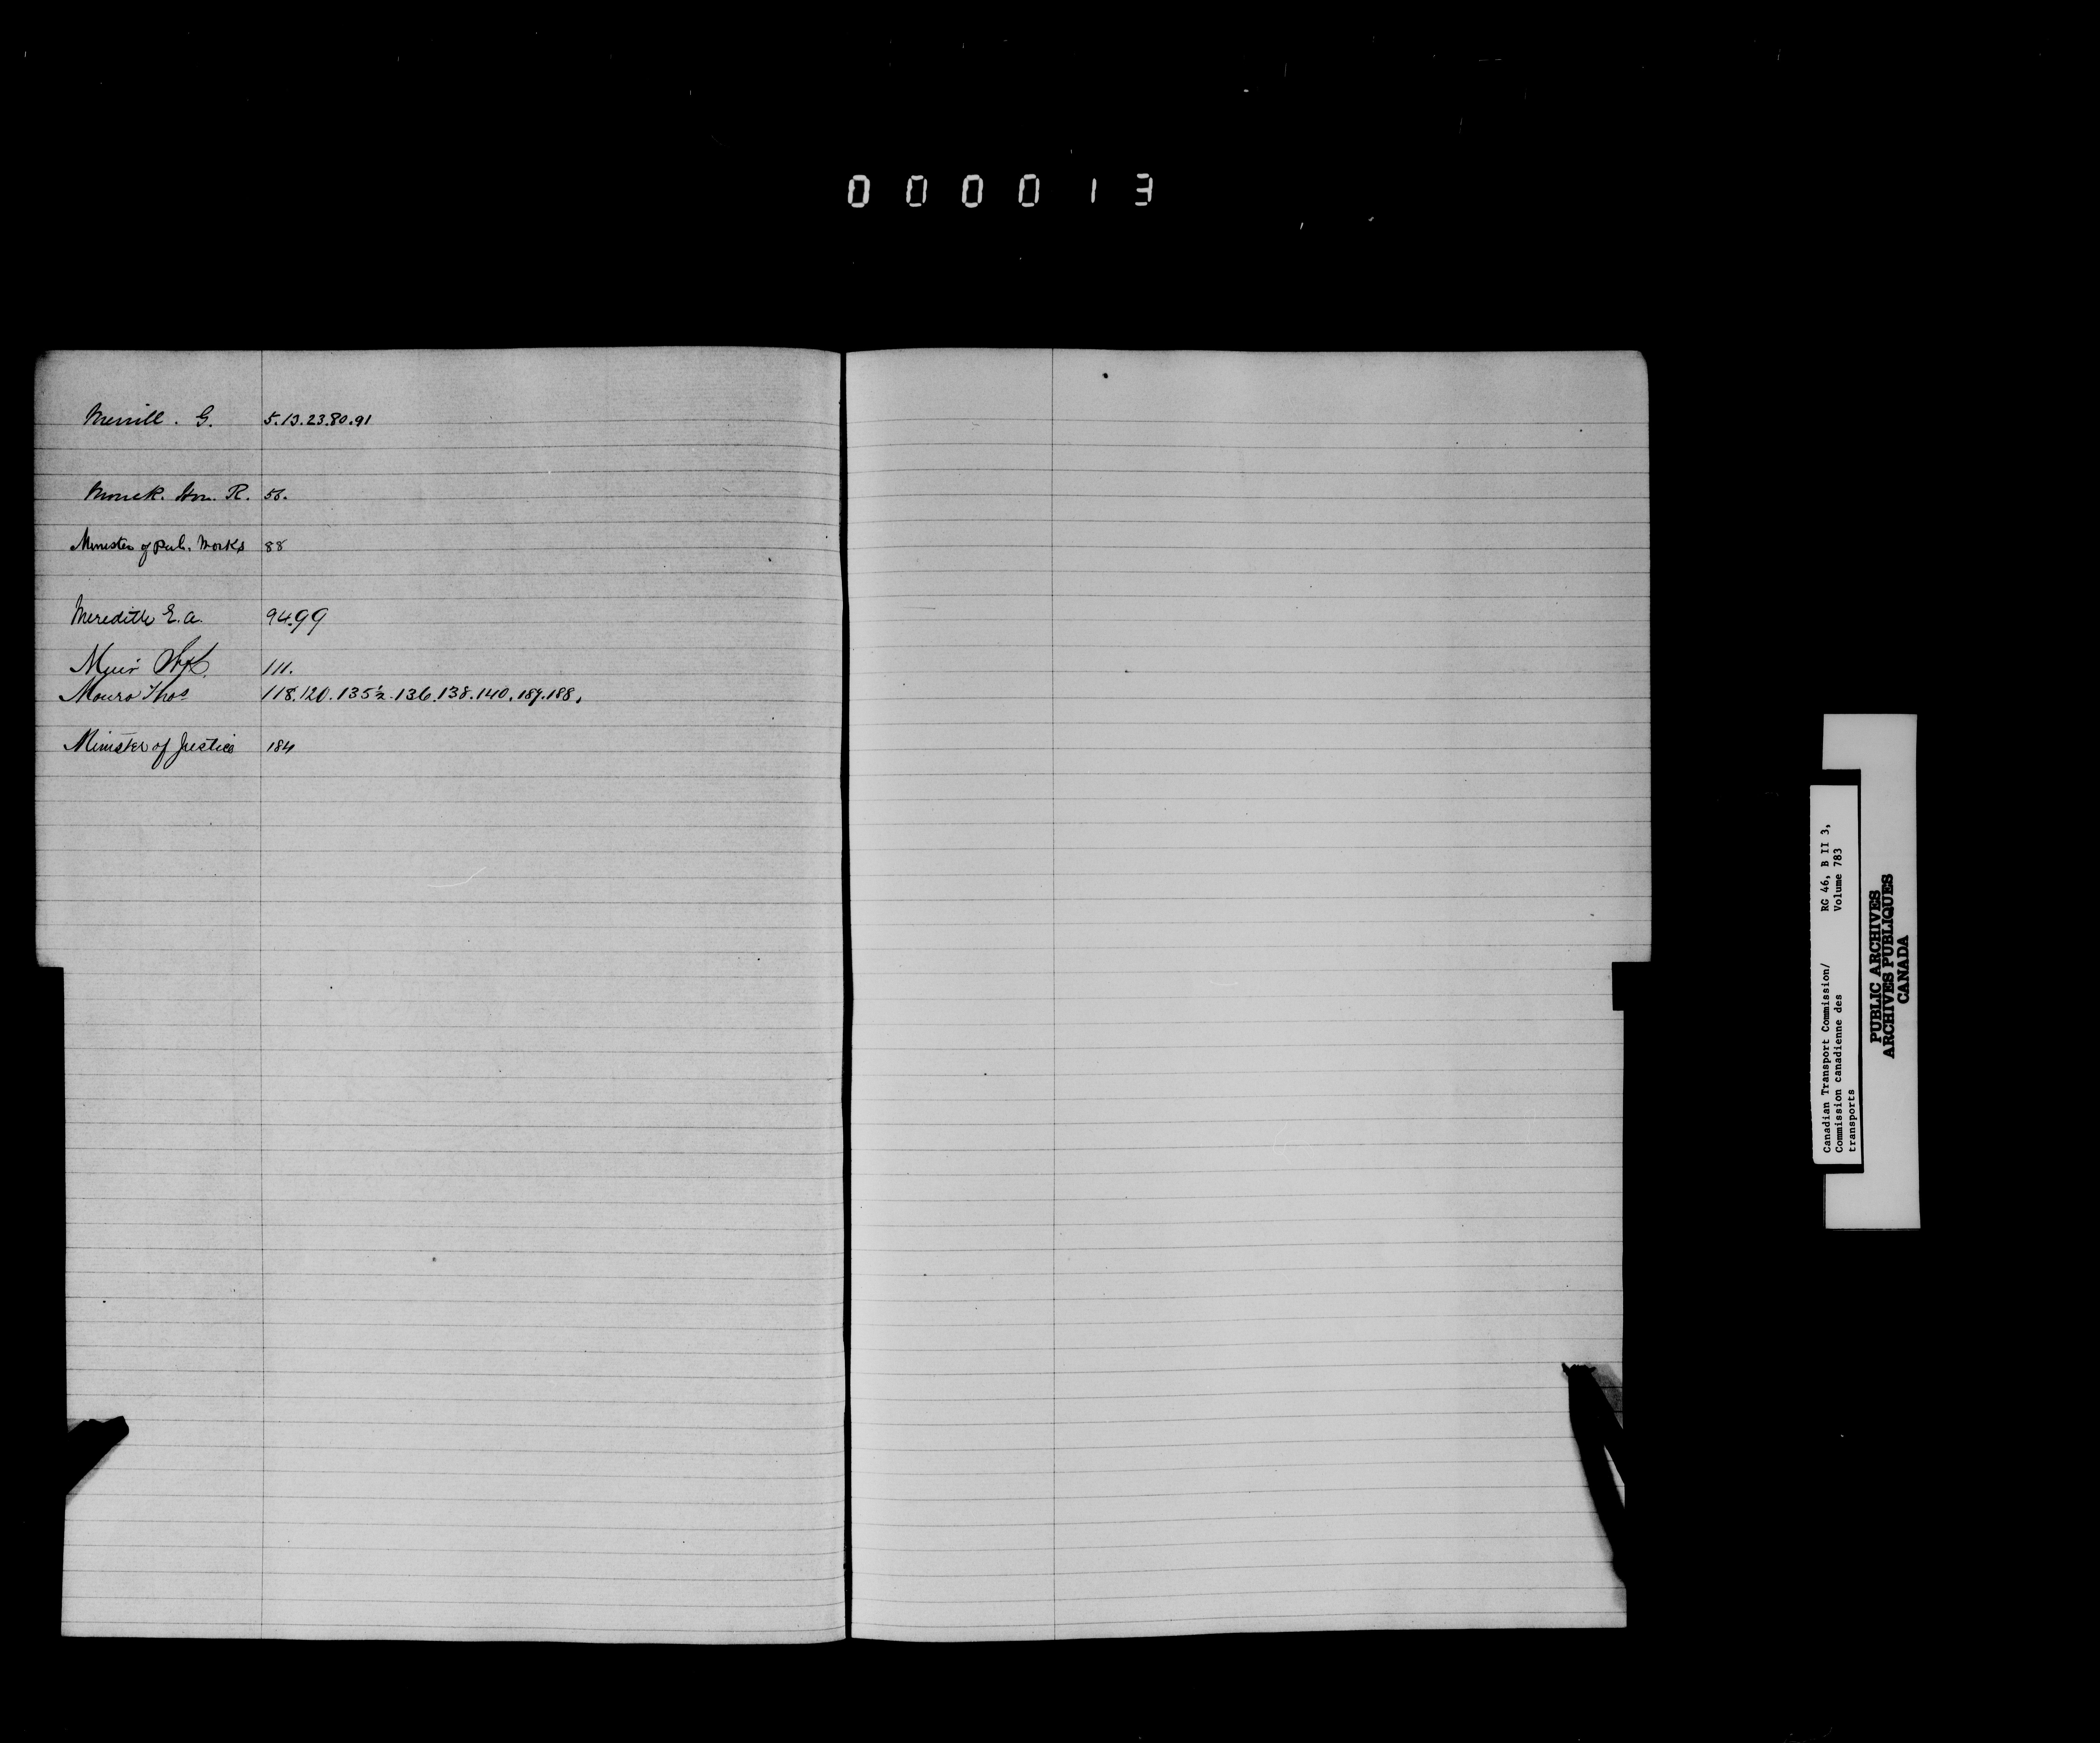 000013
Merrill . G. 5.13.23.80.91
Monck. Hon. R. 56.
Minister of Pub. Works 88
Meredith E.A. 94.99
Muir 111.
Monro Thos 118.120.135½.136.138.140.187.188.
Minister of Justice 184
Canadian Transport Commission/ RG 46, B II 3,
Commission canadienne des Volume 783
transports
PUBLIC ARCHIVES
ARCHIVES PUBLIQUES
CANADA